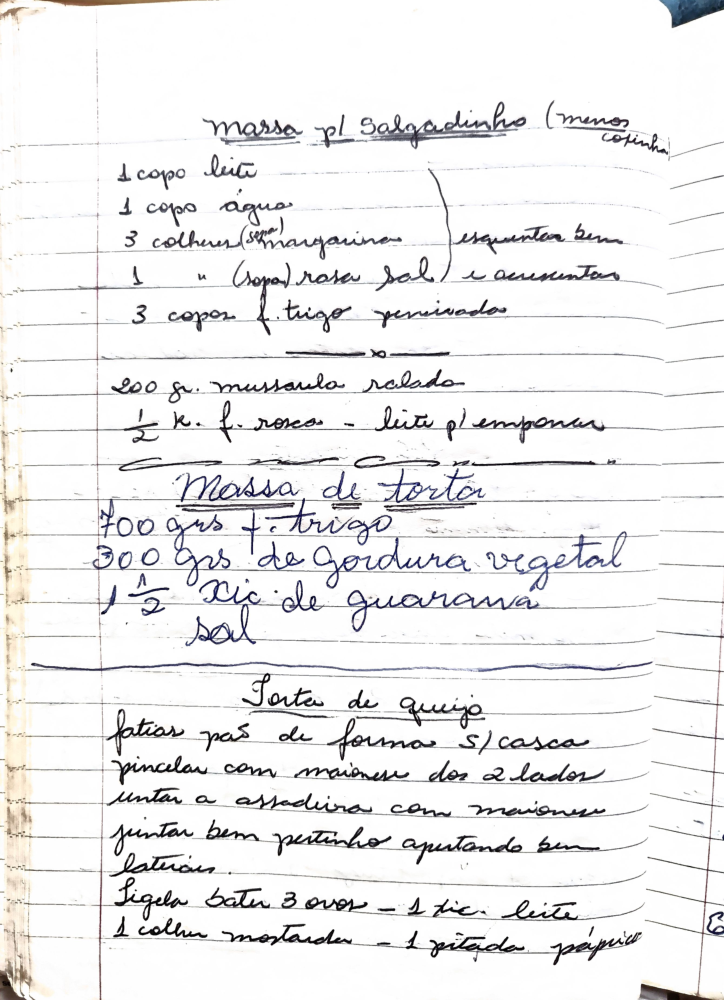 Massa p/ Salgadinho (menos coxinha)
1 copo leite
1 copo água
3 colheres (sopa) margarina } esquentar bem
1 " (sopa) rasa sal } e acrescentar
3 copos f. trigo peneirado
200 gr. mussarela ralada
1/2 k. f. rosca - leite p/ empanar
Massa de torta
700 grs f. trigo
300 grs de gordura vegetal
1 1/2 xic. de guaraná
sal
Torta de queijo
fatias pão de forma s/ casca
pincelar com maionese dos 2 lados
untar a assadeira com maionese
juntar bem pertinho apertando bem
laterais.
Tigela bater 3 ovos - 1 xic. leite
1 colher mostarda - 1 pitada páprica